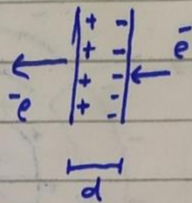 + -
+ - e̅
+ -
⁻e + -
d